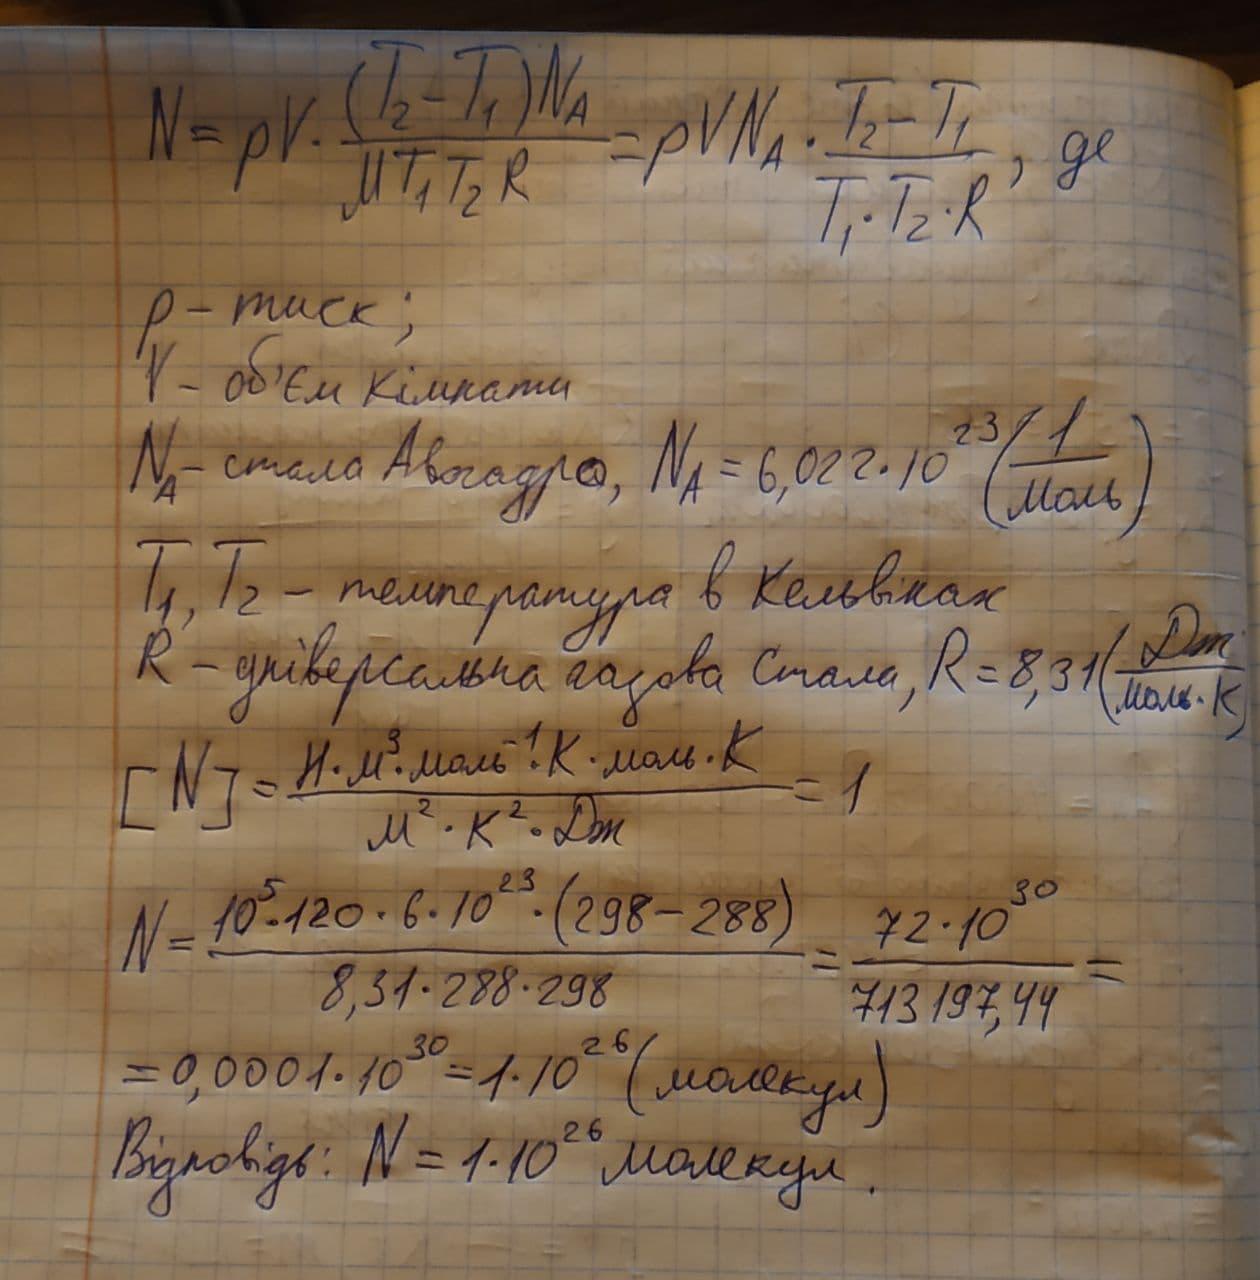 N = pV · (T₂ – T₁)N_A / MT₁T₂R = pVN_A · T₂ – T₁ / T₁·T₂·R, де
p – тиск;
V – об'єм кімнати
N_A – стала Авогадро, N_A = 6,022·10²³ (1/моль)
T₁, T₂ – температура в Кельвінах
R – універсальна газова стала, R = 8,31 (Дж/моль·К)
[N] = Н·м³·моль⁻¹·К·моль·К / м²·К²·Дж = 1
N = 10⁵·120·6·10²³·(298 – 288) / 8,31·288·298 = 72·10³⁰ / 713197,44 =
= 0,0001·10³⁰ = 1·10²⁶ (молекул)
Відповідь: N = 1·10²⁶ молекул.